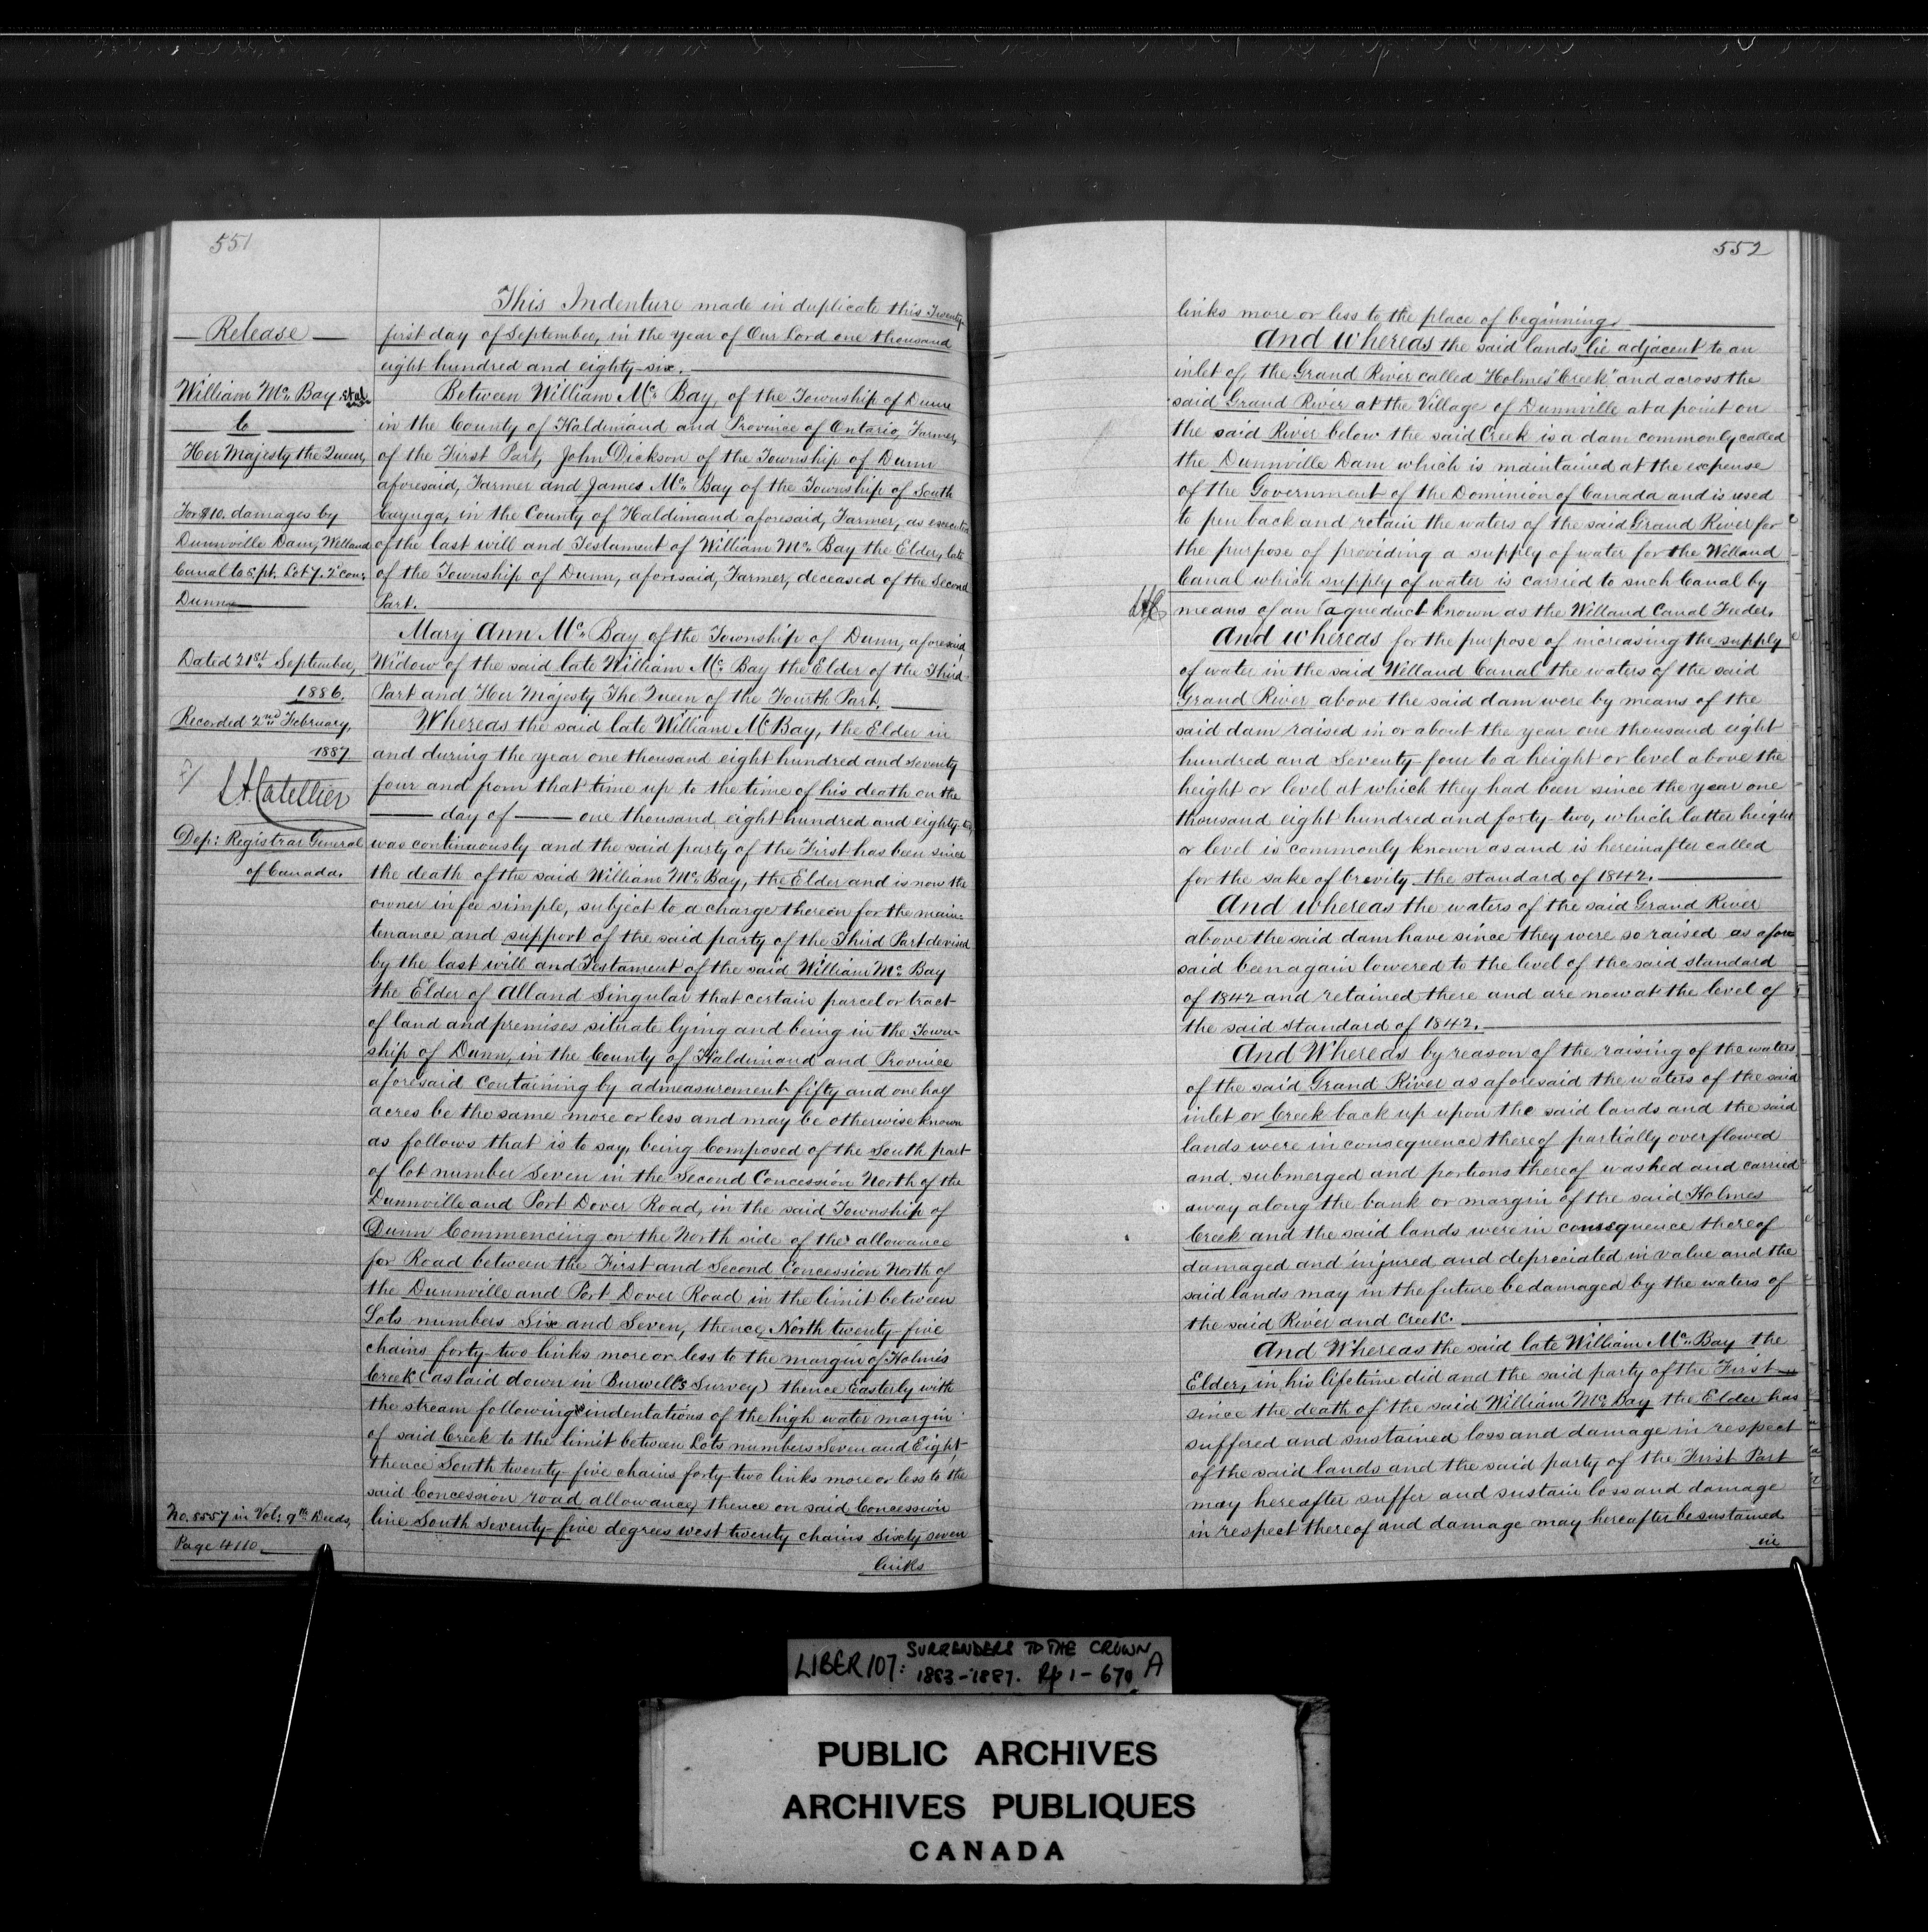 551
Release
William Mc. Bay et al
to
Her Majesty the Queen,
For $10. damages by
Dunnville Dam, Welland
Canal to S. pt. Lot 7. 2d con:
Dunn
Dated 21st September,
1886.
Recorded 2nd February,
1887
L A Catellier
Dep: Registrar General
of Canada.
No. 5557 in Vol: 9th Deeds,
Page 4110
This Indenture made in duplicate this Twenty-
first day of September, in the year of Our Lord one thousand
eight hundred and eighty-six.
Between William Mc. Bay, of the Township of Dunn
in the County of Haldimand and Province of Ontario, Farmer,
of the First Part, John Dickson of the Township of Dunn
aforesaid, Farmer and James Mc. Bay of the Township of South
Cayuga, in the County of Haldimand aforesaid, Farmer, as executors
of the last will and Testament of William Mc. Bay the Elder, late
of the Township of Dunn, aforesaid, Farmer, deceased of the Second
Part.
Mary Ann Mc. Bay of the Township of Dunn, aforesaid
Widow of the said late William Mc. Bay the Elder of the Third
Part and Her Majesty The Queen of the Fourth Part.
Whereas the said late William Mc Bay, the Elder in
and during the year one thousand eight hundred and seventy
four and from that time up to the time of his death on the
day of one thousand eight hundred and eighty-
was continuously and the said party of the First has been since
the death of the said William Mc. Bay, the Elder and is now the
owner in fee simple, subject to a charge thereon for the main=
tenance and support of the said party of the Third Part devised
by the last will and Testament of the said William Mc. Bay
the Elder of All and Singular that certain parcel or tract
of land and premises situate lying and being in the Town=
ship of Dunn, in the County of Haldimand and Province
aforesaid containing by admeasurement fifty and one half
acres be the same more or less and may be otherwise known
as follows that is to say, being Composed of the South part
of lot number Seven in the Second Concession North of the
Dunnville and Port Dover Road, in the said Township of
Dunn Commencing on the North side of the allowance
for Road between the First and Second Concession North of
the Dunnville and Port Dover Road in the limit between
Lots numbers Six and Seven, thence, North twenty-five
chains forty-two links more or less to the margin of Holmes
Creek (as laid down in Burwell's Survey) thence Easterly with
the stream following indentations of the high water margin
of said Creek to the limit between Lots numbers Seven and Eight,
thence South twenty-five chains forty-two links more or less to the
said Concession road allowance, thence on said Concession
line South Seventy-five degrees west twenty chains Sixty seven
links
552
links more or less to the place of beginning.
And whereas the said lands lie adjacent to an
inlet of the Grand River called "Holmes' Creek" and across the
said Grand River at the Village of Dunnville at a point on
the said River below the said Creek is a dam commonly called
the Dunnville Dam which is maintained at the expense
of the Government of the Dominion of Canada and is used
to pen back and retain the waters of the said Grand River for
the purpose of providing a supply of water for the Welland
Canal which supply of water is carried to such Canal by
means of an aqueduct known as the Welland Canal Feeder.
And whereas for the purpose of increasing the supply
of water in the said Welland Canal the waters of the said
Grand River above the said dam were by means of the
said dam raised in or about the year one thousand eight
hundred and Seventy-four to a height or level above the
height or level at which they had been since the year one
thousand eight hundred and forty-two, which latter height
or level is commonly known as and is hereinafter called
for the sake of brevity the standard of 1842.
And whereas the waters of the said Grand River
above the said dam have since they were so raised as afore
said been again lowered to the level of the said standard
of 1842 and retained there and are now at the level of
the said standard of 1842.
And Whereas by reason of the raising of the waters
of the said Grand River as aforesaid the waters of the said
inlet or Creek back up upon the said lands and the said
lands were in consequence thereof partially overflowed
and submerged and portions thereof washed and carried
away along the bank or margin of the said Holmes
Creek and the said lands were in consequence thereof
damaged and injured and depreciated in value and the
said lands may in the future be damaged by the waters of
the said River and Creek.
And Whereas the said late William Mc. Bay the
Elder, in his lifetime did and the said party of the First
since the death of the said William Mc. Bay the Elder has
suffered and sustained loss and damage in respect
of the said lands and the said party of the First Part
may hereafter suffer and sustain loss and damage
in respect thereof and damage may hereafter be sustained
in
LIBER 107: SURRENDERS TO THE CROWN A
1883-1887. Pp 1-670
PUBLIC ARCHIVES
ARCHIVES PUBLIQUES
CANADA